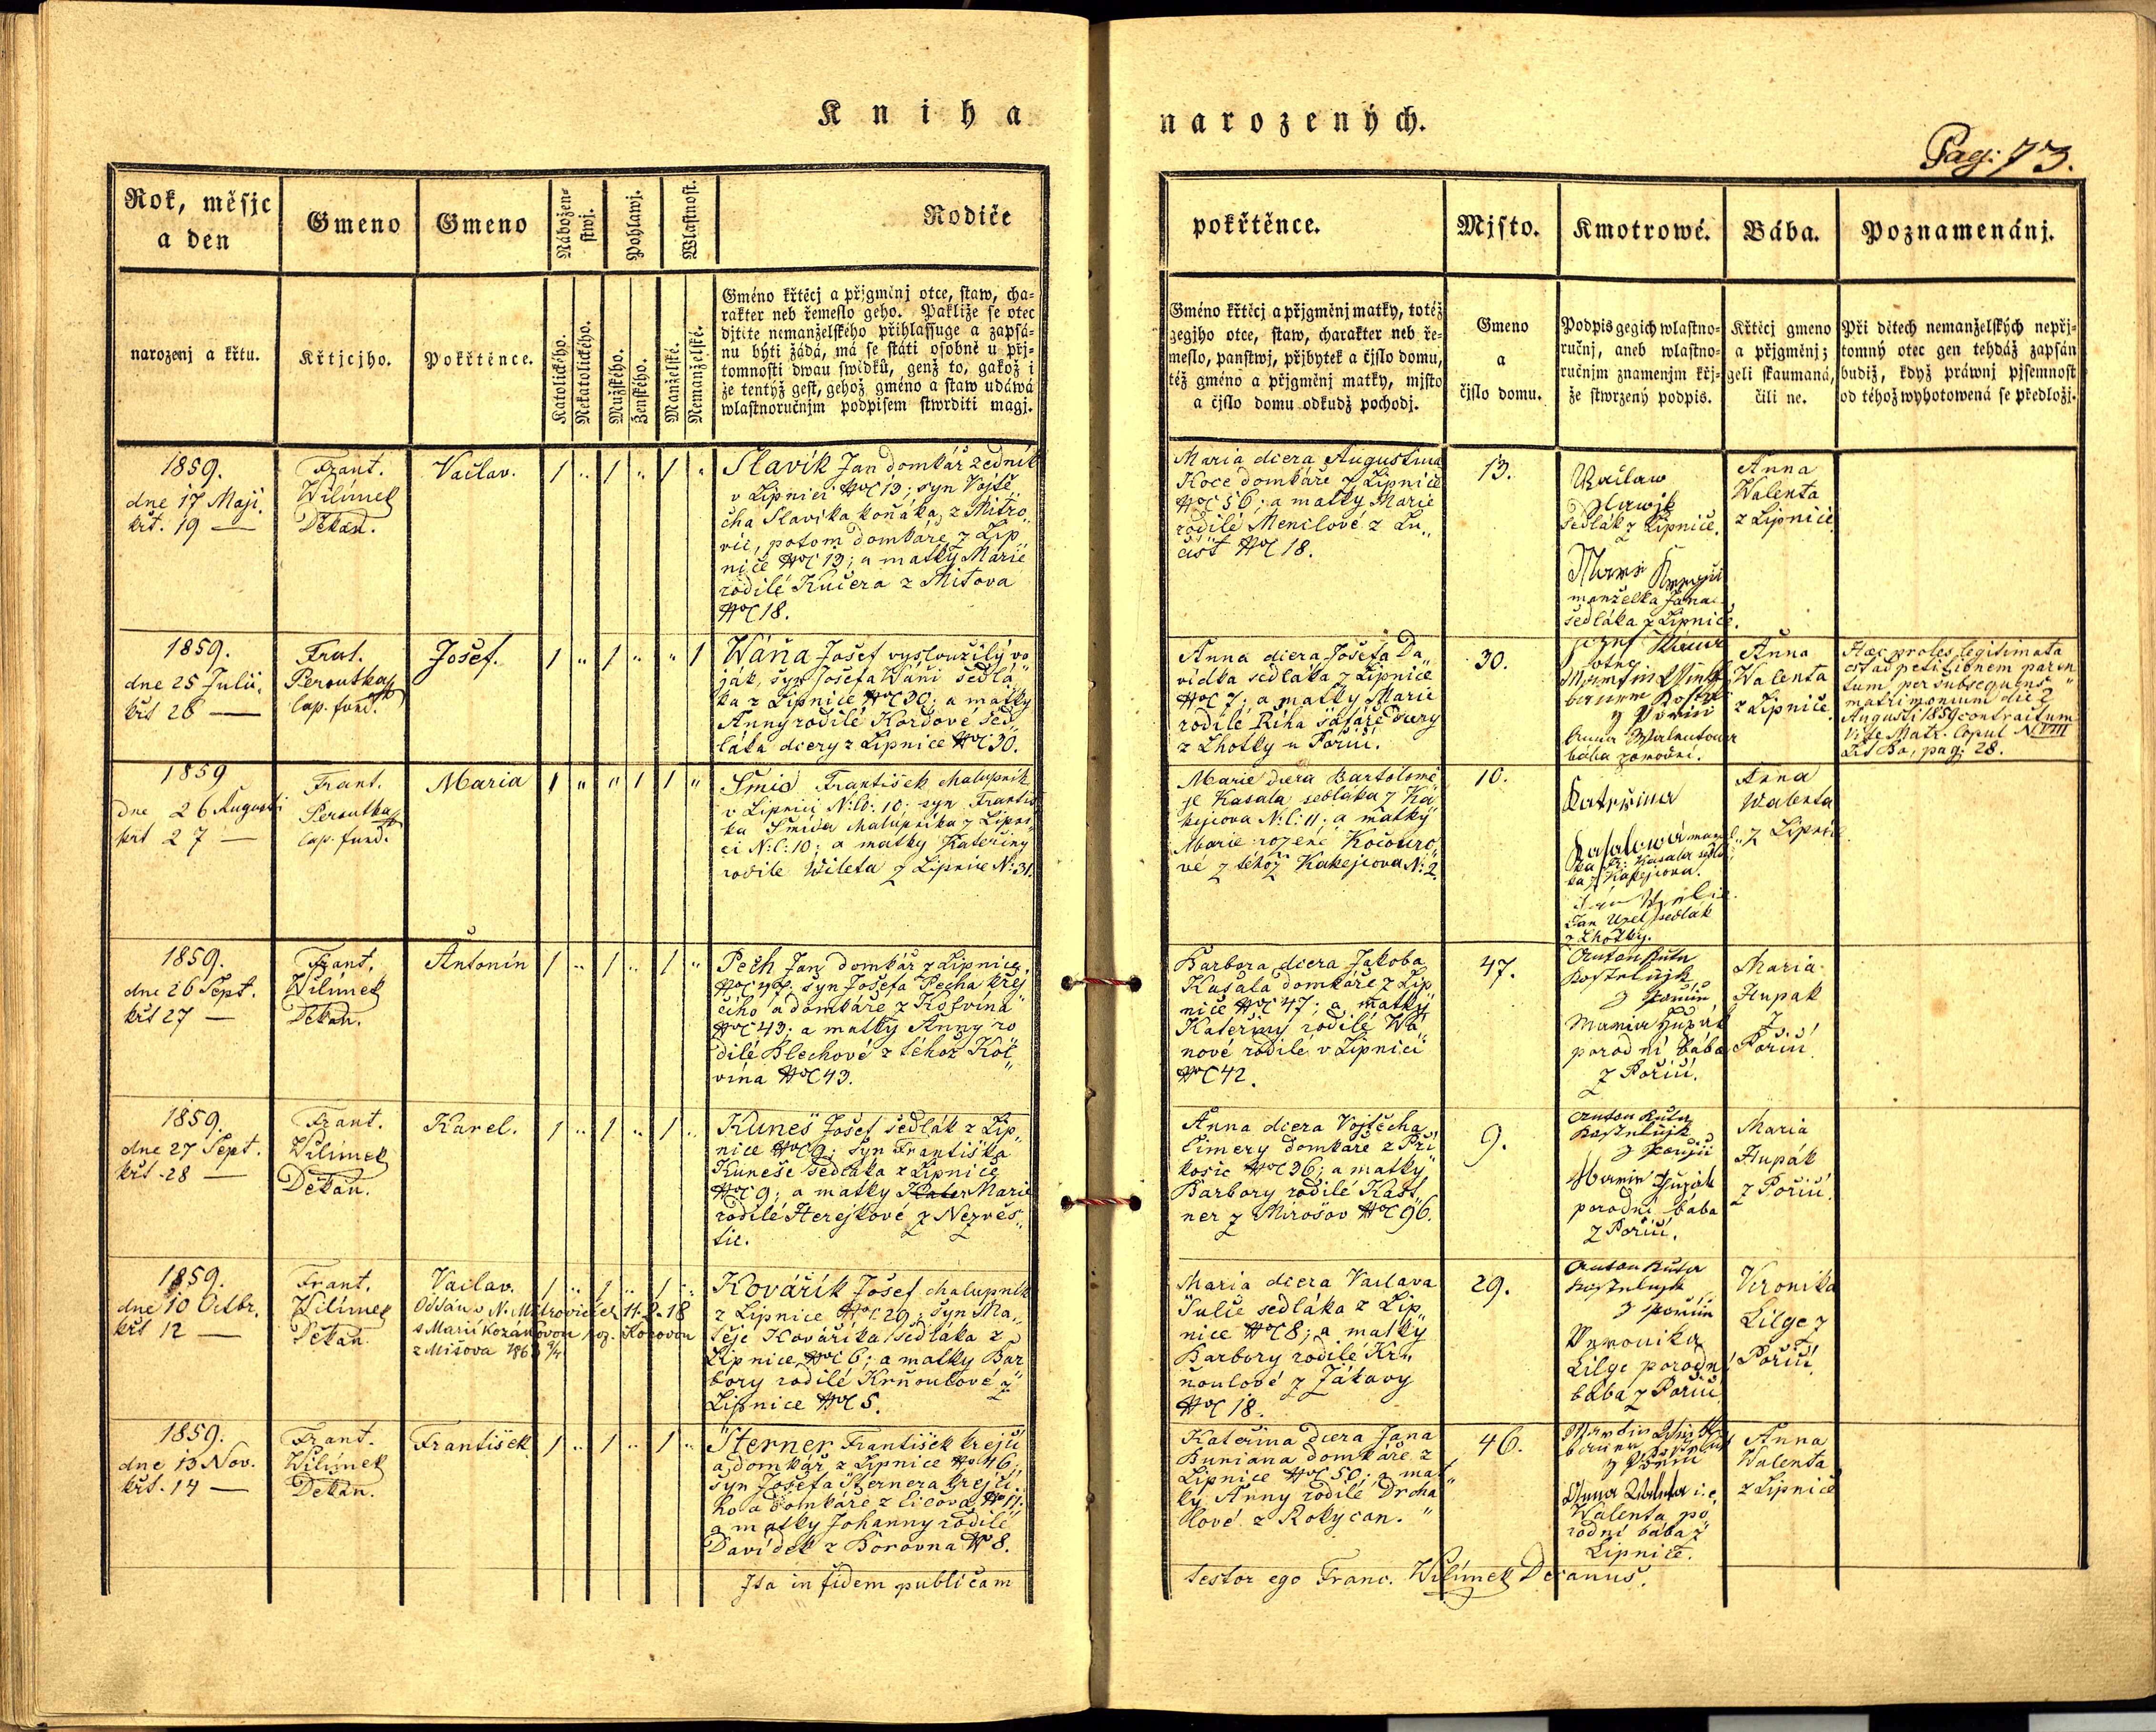 Kniha
narozených.
Pag: 73.
Rok, měsjc
a den
Gmeno
Gmeno
Nábožen=
stwj.
Pohlawj.
Wlastnost.
Rodiče
narozenj a křtu.
Křtjcjho.
Pokřtěnce.
Katolického.
Nekatolického.
Mužského.
Ženského.
Manželské.
Nemanželské.
Gméno křtěcj a přjgměnj otce, staw, cha=
rakter neb řemeslo geho. Pakliže se otec
djtěte nemanželského přihlassuge a zapsá=
nu býti žádá, má se státi osobně u přj=
tomnosti dwau swědků, genž to, gakož i
že tentýž gest, gehož gméno a staw udáwá
wlastnoručnjm podpisem stwrditi magj.
pokřtěnce.
Mjsto.
Kmotrowé.
Bába.
Poznamenánj.
Gméno křtěcj a přjgměnj matky, totéž
gegjho otce, staw, charakter neb ře=
meslo, panstwj, přjbytek a čjslo domu,
též gméno a přjgměnj matky, mjsto
a čjslo domu odkudž pochodj.
Gmeno
a
čjslo domu.
Podpis gegich wlastno=
ručnj, aneb wlastno=
ručnjm znamenjm křj=
že stwrzený podpis.
Křtěcj gmeno
a přjgměnj;
geli skaumaná,
čili ne.
Při dětech nemanželských nepřj=
tomný otec gen tehdáž zapsán
budiž, když práwnj pjsemnost
od téhož wyhotowená se předložj.
1859.
dne 17 Maji.
křt. 19 —
Frant.
Wilímek
Děkan.
Vačlav.
1 " 1 " 1 "
Slavík Jan domkář zedník
v Lipnici NC 13; syn Vojtě
cha Slavíka koňáka z Mitro„
vic, potom domkáře z Lip
nice NC 13; a matky Marie
rodilé Kučera z Mitova
NC 18.
Maria dcera Augustina
Koce domkáře z Lipnice
NC 56; a matky Marie
rodilé Menclové z Lu„
čišt NC 18.
13.
Waclaw
Slawjk
sedlák z Lipnice.
manželka Jana
sedláka z Lipnice.
Anna
Walenta
z Lipnice
1859.
dne 25 Julii.
křt 26 —
Frant.
Peroutka
Cap. fund.
Josef.
1 " 1 " " 1
Wáňa Josef vysloužilý vo
ják, syn Josefa Wáni sedlá„
ka z Lipnice NC 30; a matky
Anny rodilé Kordové sed„
láka dcery z Lipnice NC 30.
Anna dcera Josefa Da„
vidka sedláka z Lipnice
NC 7; a matky Marie
rodilé Říha šafáře dcery
z Lhotky u Poříčí.
30.
Anna Walentowa
bába porodní.
Anna
Walenta
z Lipnice.
Haec proles legitimata
est ad petitionem paren„
tum per subsequens
matrimonium die 2
Augusti 1859 contractum
Vide Matr. Copul N VIII
Lit Ba, pag: 28.
1859
dne 26 Augusti
křt 27 —
Frant.
Peroutka
Cap. fund.
Maria
1 " " 1 1 "
Šmíd František chalupník
v Lipnici N: C: 10; syn Františ
ka Šmída chalupníka z Lipni„
ci N: C: 10; a matky Kateřiny
rodilé Wileta z Lipnice N: 31.
Marie dcera Bartolomě
je Kasala sedláka z Ka
kejcova N: C: 11; a matky
Marie rozené Kocouro„
vé z téhož Kakejcova N: 2.
10.
Kateřina
Kasalowá
ka z Kakejcova.
Jan Uzel sedlák
z Lhotky.
Anna
Walenta
z Lipnice
1859.
dne 26 Sept.
křt 27 —
Frant.
Wilímek
Děkan.
Antonín
1 " 1 " 1 "
Pech Jan domkář z Lipnice
NC 47. syn Josefa Pecha krej„
čího a domkáře z Kolvína
NC 43; a matky Anny ro
dilé Blechové z téhož Kol„
vína NC 43.
Barbora dcera Jakoba
Kasala domkáře z Lip
nice NC 47; a matky
Kateřiny rodilé Wá„
nové rodilé v Lipnici
NC 42.
47.
Anton Kuta
Kostelnjk
z Pořiči
Maria Hupák
porodní bába
z Poříčí.
Maria
Hupak
z
Poříčí.
1859.
dne 27 Sept.
křt. 28 —
Frant.
Wilímek
Děkan.
Karel.
1 " 1 " 1 "
Kuneš Josef sedlák z Lip„
nice NC 9; syn Františka
Kuneše sedláka z Lipnice
NC 9; a matky Kater Marie
rodilé Herejkové z Nezvěs„
tic.
Anna dcera Vojtěcha
Cimery domkáře z Pří
kosic NC 36; a matky
Barbory rodilé Kast„
ner z Mirošov NC 96.
9.
Anton Kuta
Kostelnjk
z Pořiči
Marie Hupák
porodní bába
z Poříčí.
Maria
Hupák
z Poříčí.
1859.
dne 10 Octbr.
křt 12 —
Frant.
Wilímek
Děkan.
Vaclav.
1 " 1 " 1 "
s Marií Kozákovou roz. Kozovou
z Mišova
Kovářík Josef chalupník
z Lipnice NC 29; syn Ma„
těje Kováříka sedláka z
Lipnice NC 6; a matky Bar
bory rodilé Krňoulové z
Lipnice NC 5.
Maria dcera Vaclava
Šulce sedláka z Lip„
nice NC 8; a matky
Barbory rodilé Kr„
ňoulové z Žákavy
NC 18.
29.
Anton Kuta
Kostelnjk
z Pořiči
Veronika
Lilge porodní
bába z Poříčí
Veronika
Lilge z
Poříčí.
1859.
dne 13 Nov.
křt. 14 —
Frant.
Wilímek
Děkan.
František
1 " 1 " 1 "
Sterner František krejčí
a domkář z Lipnice N 46;
syn Josefa Sternera krejčí„
ho a domkáře z Cilova N 11;
a matky Johanny rodilé
Davídek z Borovna N 8.
Kateřina dcera Jana
Buriana domkáře z
Lipnice NC 50; a mat„
ky Anny rodilé Drcha
lové z Rokycan.
46.
Anna Walenta i.e.
Walenta po„
rodní bába z
Lipnice.
Anna
Walenta
z Lipnice
Ita in fidem publicam
testor ego Franc. Wilímek Decanus.